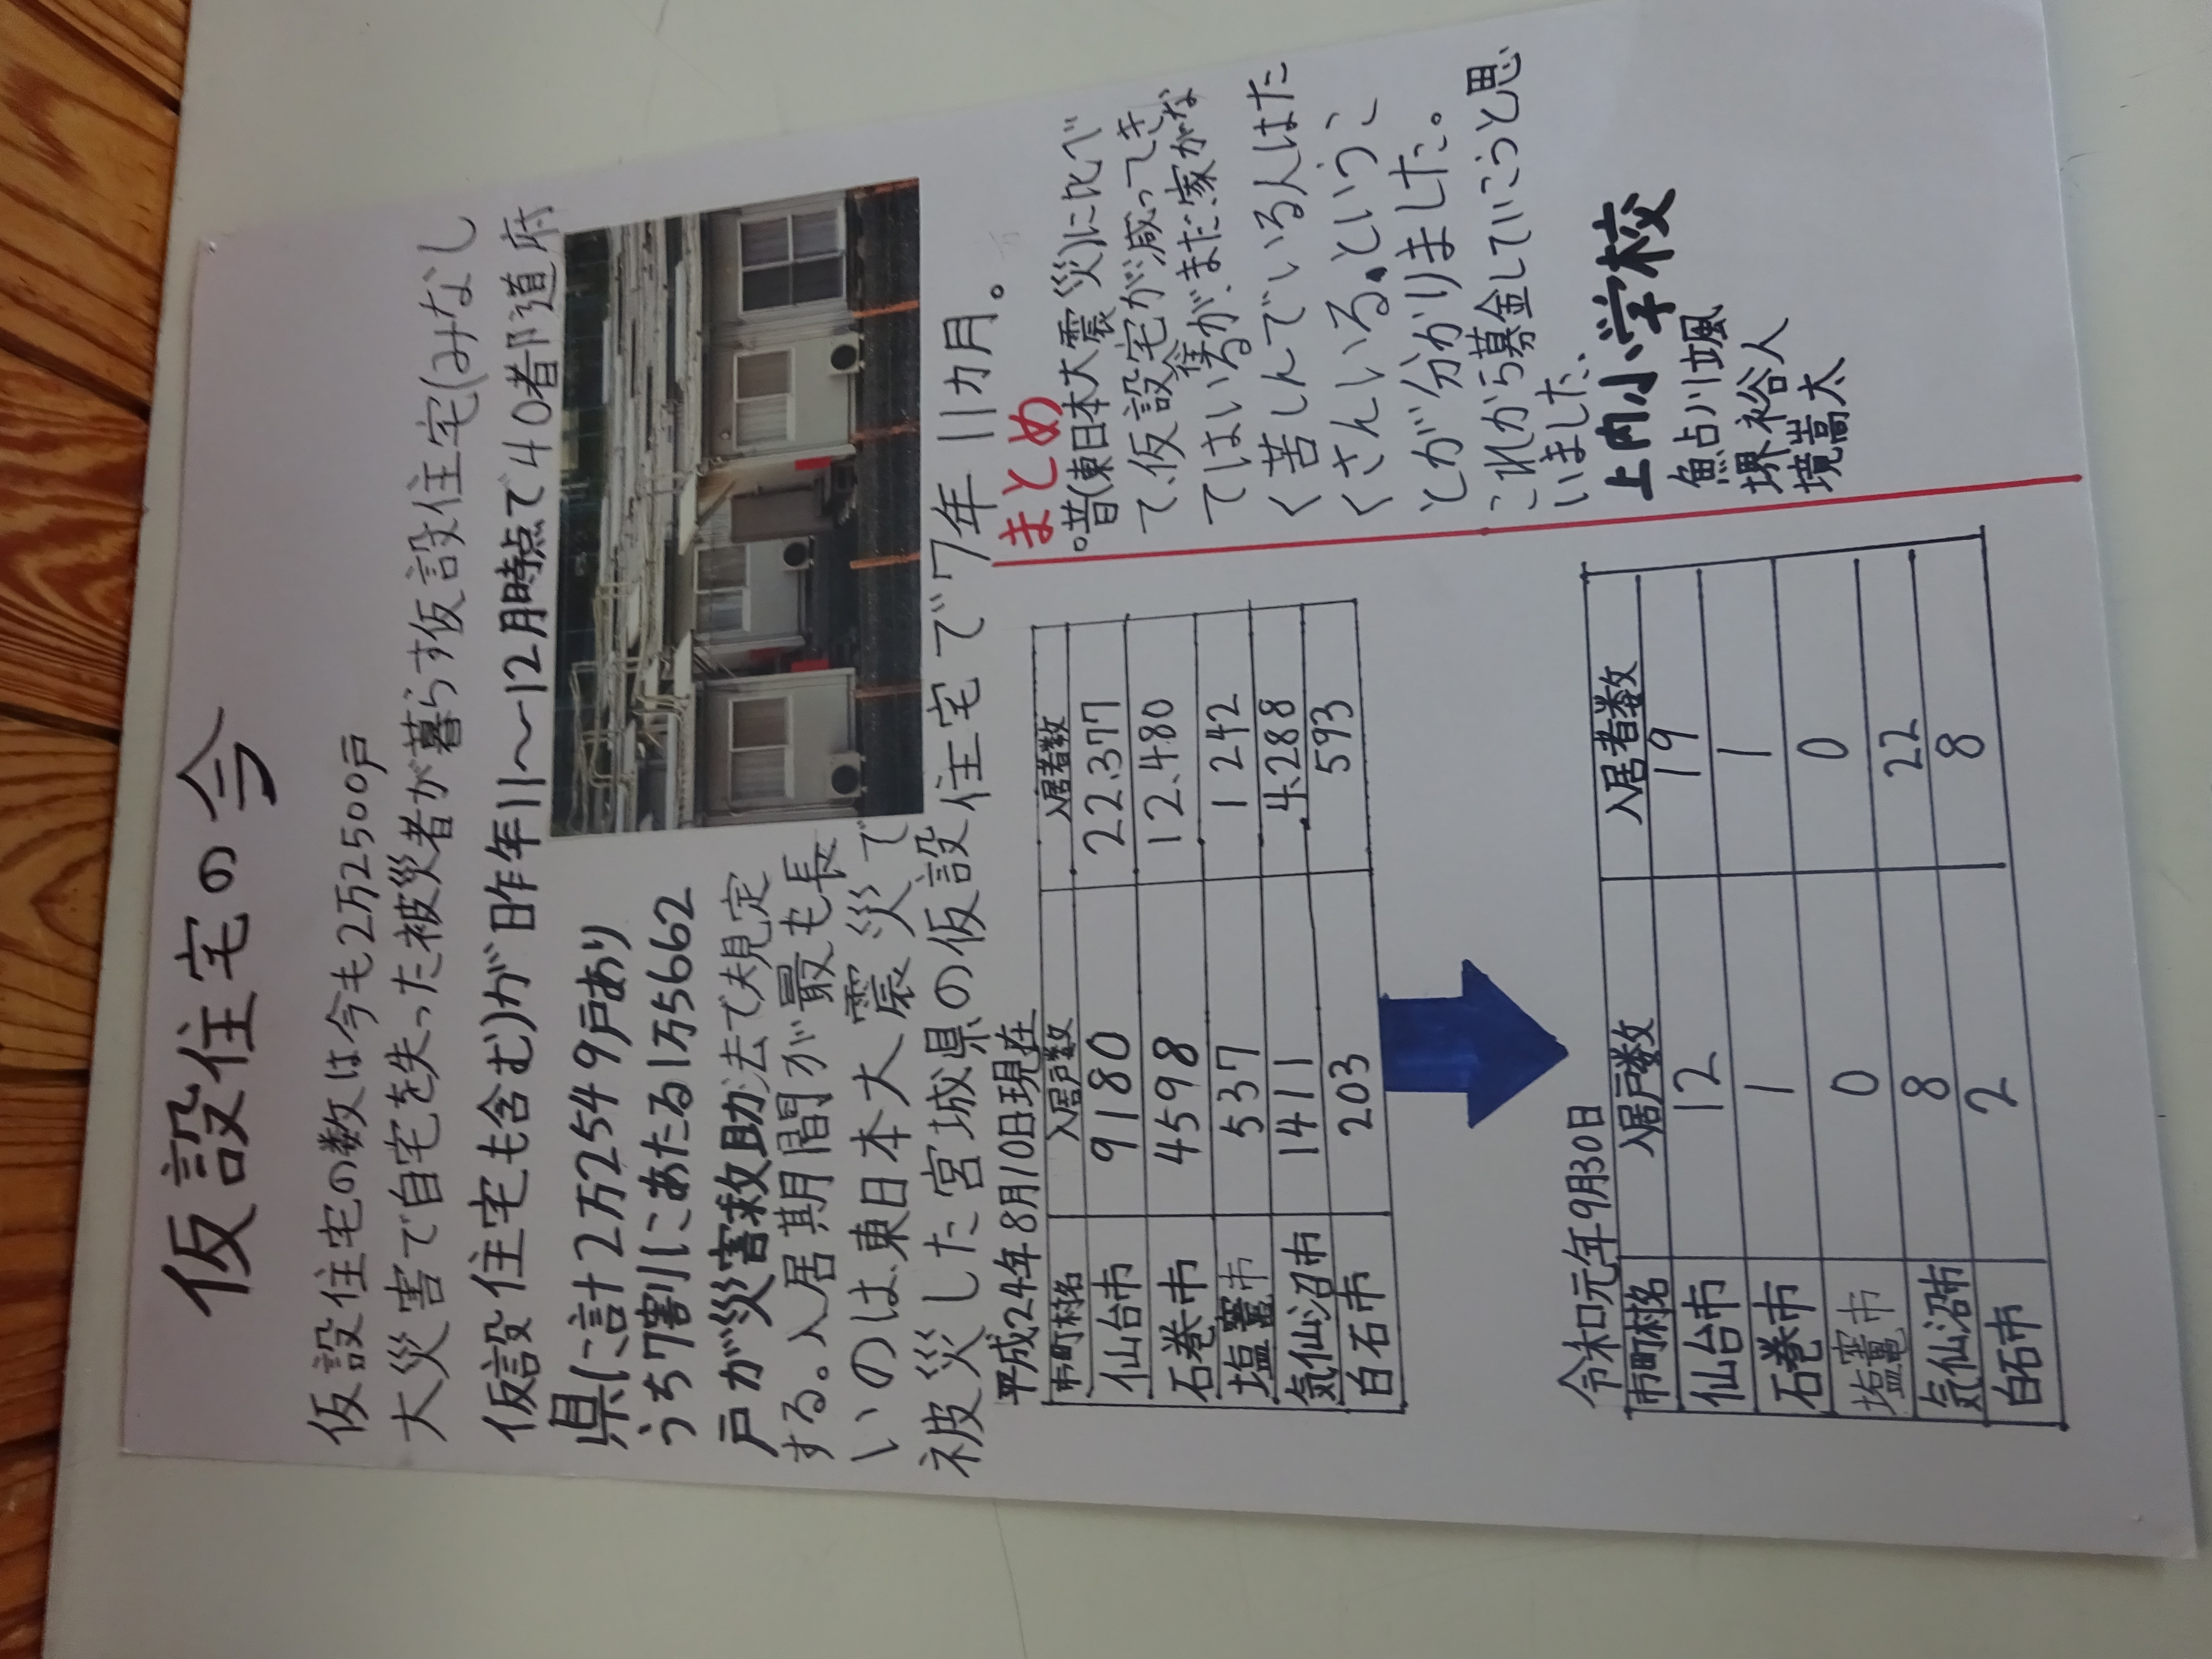 仮設住宅の今
仮設住宅の数は今も2万2500戸
大災害で自宅を失った被災者が暮らす仮設住宅(みなし
仮設住宅も含む)が昨年11〜12月時点で40都道府
県に計2万2549戸あり
うち7割にあたる1万5662
戸が災害救助法で規定
する。入居期間が最も長
いのは、東日本大震災で
被災した宮城県の仮設住宅で7年11カ月。
平成24年8月10日現在
市町村名 入居戸数 入居者数
仙台市 9180 22.377
石巻市 4598 12.480
塩竈市 537 1242
気仙沼市 1411 4.288
白石市 203 593
令和元年9月30日
市町村名 入居戸数 入居者数
仙台市 12 19
石巻市 1 1
塩竈市 0 0
気仙沼市 8 22
白石市 2 8
まとめ
。昔(東日本大震災)に比べ
て、仮設住宅が減ってき
てはいるが、まだ家がな
く苦しんでいる人はた
くさんいる。というこ
とが分かりました。
これから募金していこうと思
いました。
上内小学校
魚占川颯
堺裕人
境嵩太